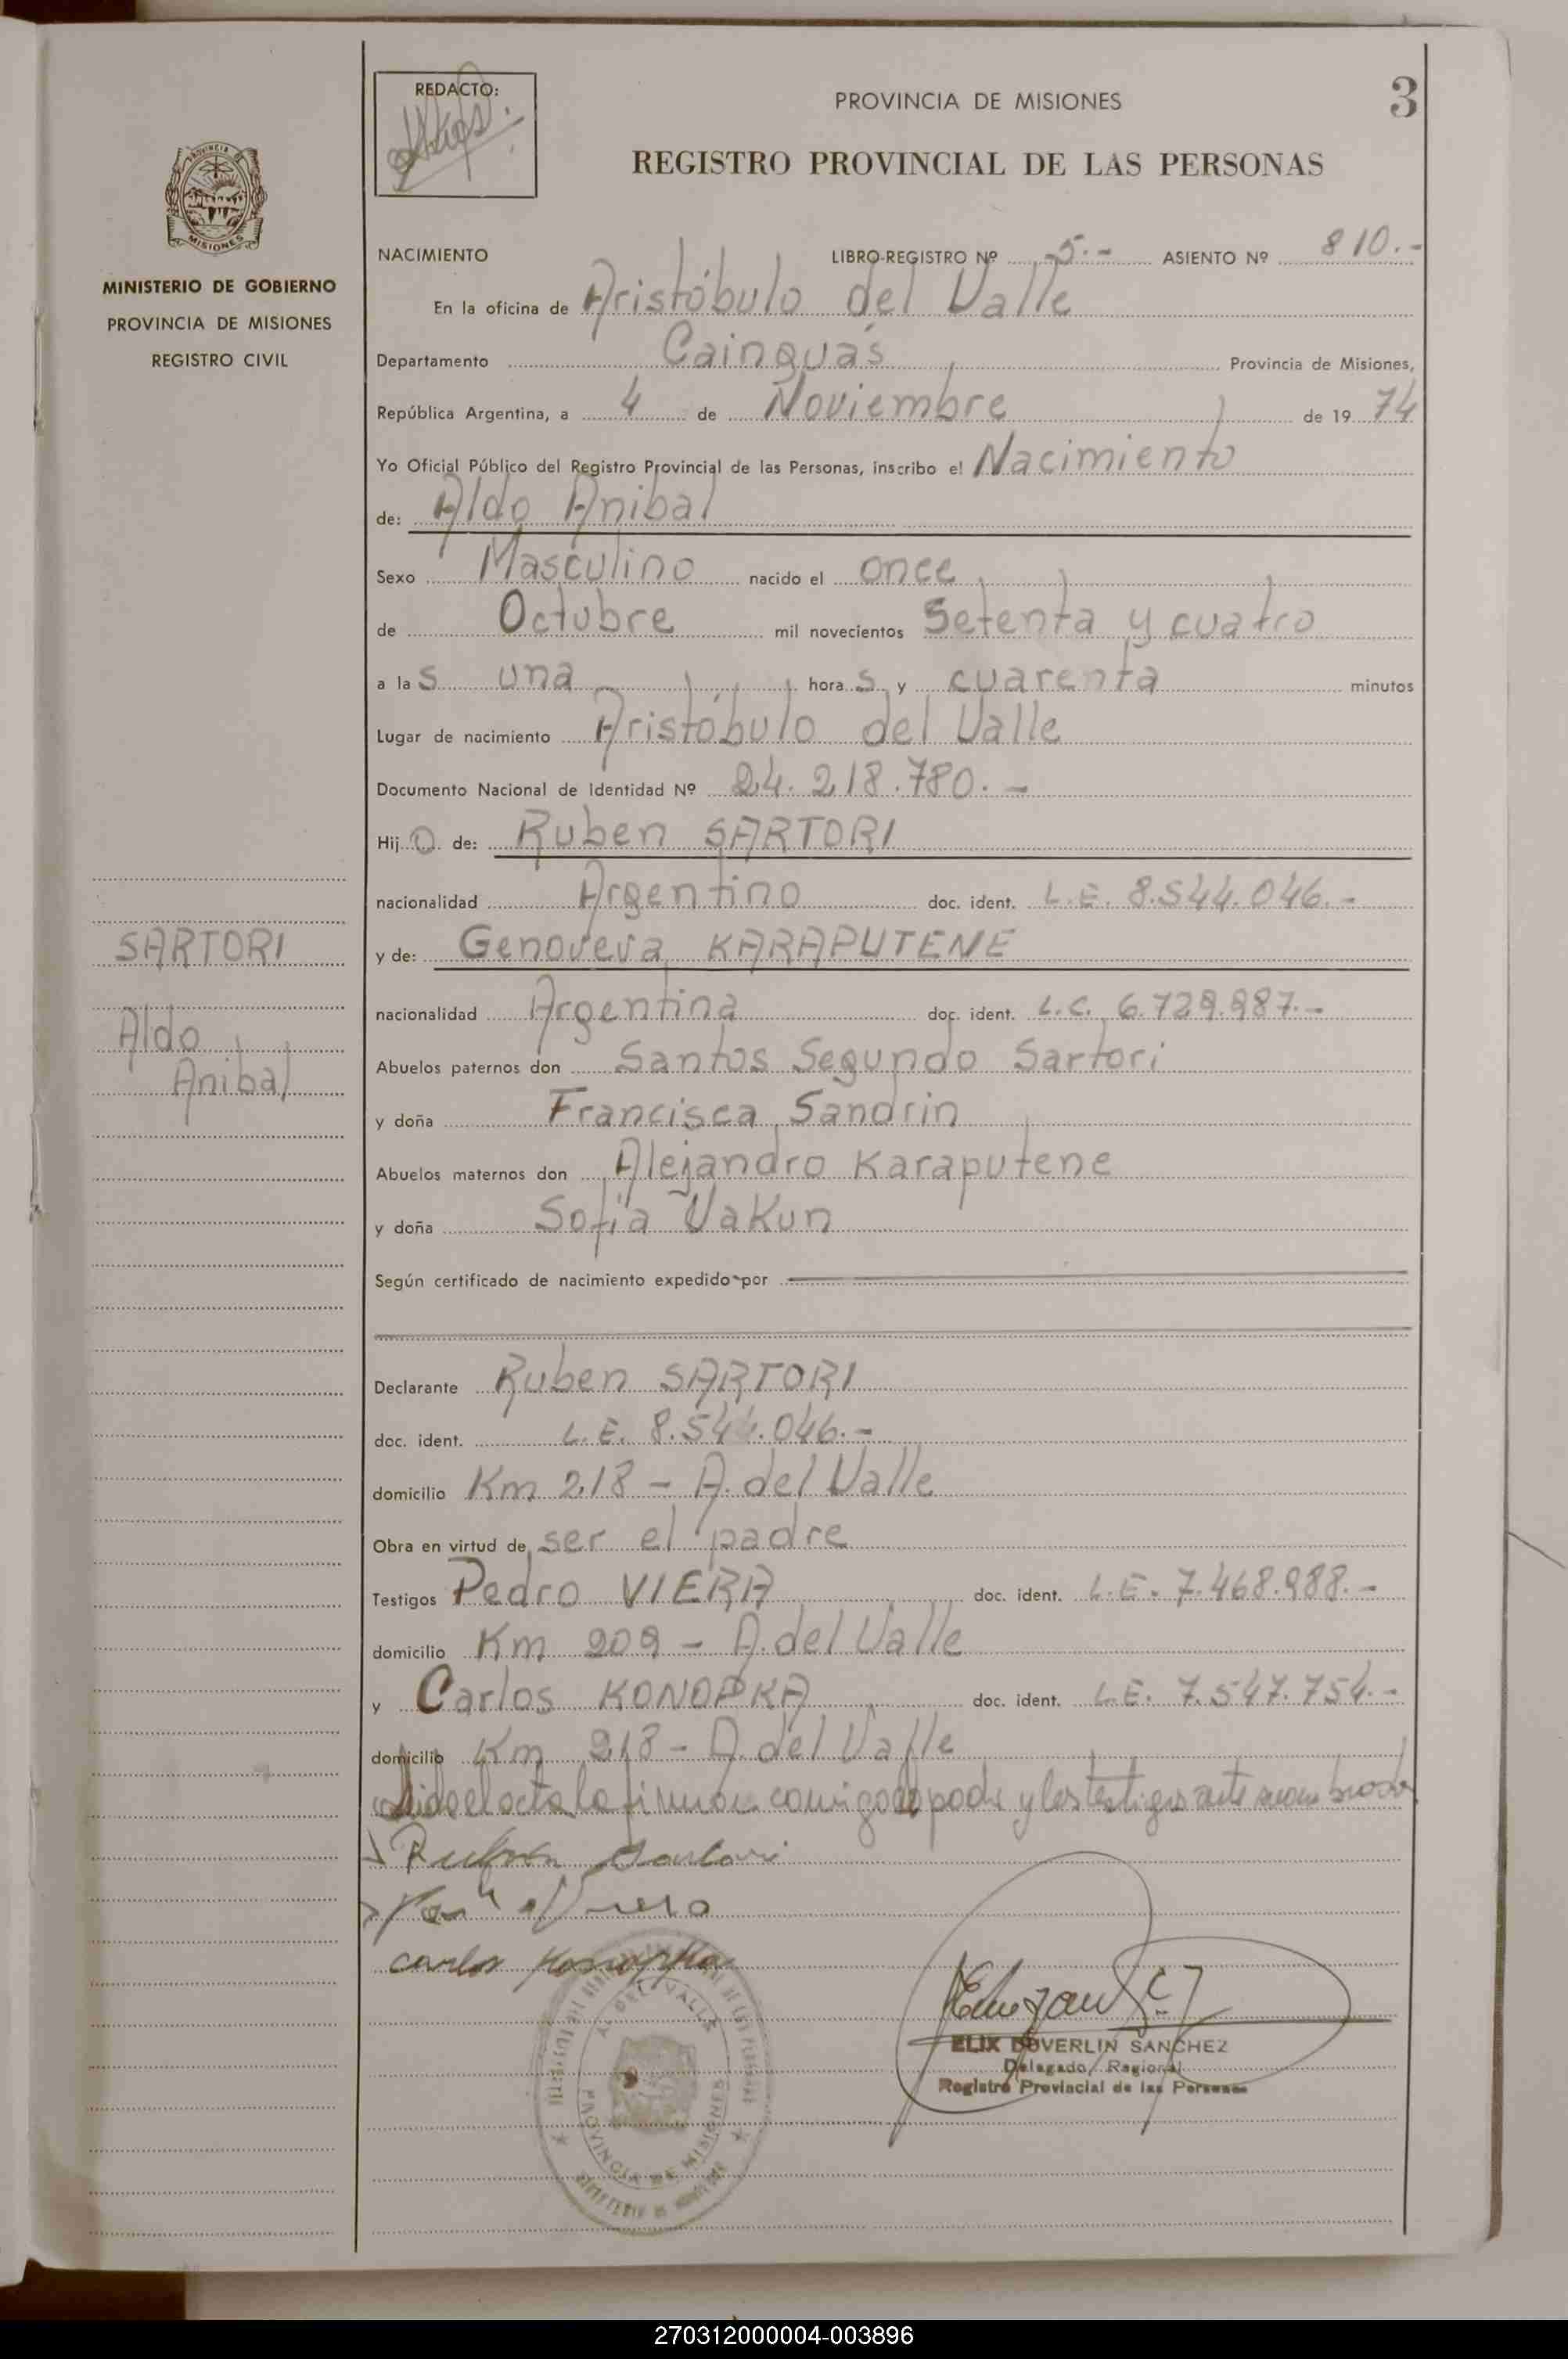 REDACTO:
PROVINCIA DE MISIONES
3
REGISTRO PROVINCIAL DE LAS PERSONAS
PROVINCIA
MISIONES
MINISTERIO DE GOBIERNO
PROVINCIA DE MISIONES
REGISTRO CIVIL
NACIMIENTO LIBRO-REGISTRO Nº 5.- ASIENTO Nº 810.-
En la oficina de Aristóbulo del Valle
Departamento Cainguás Provincia de Misiones,
República Argentina, a 4 de Noviembre de 19 74
Yo Oficial Público del Registro Provincial de las Personas, inscribo el Nacimiento
de: Aldo Anibal
Sexo Masculino nacido el once
de Octubre mil novecientos Setenta y cuatro
a las una horas y cuarenta minutos
Lugar de nacimiento Aristóbulo del Valle
Documento Nacional de Identidad Nº 24.218.780.-
Hijo de: Ruben SARTORI
nacionalidad Argentino doc. ident. L.E. 8.544.046.-
SARTORI
y de: Genoveva KARAPUTENE
nacionalidad Argentina doc. ident. L.C. 6.729.987.-
Aldo
Anibal
Abuelos paternos don Santos Segundo Sartori
y doña Francisca Sandrin
Abuelos maternos don Alejandro Karaputene
y doña Sofía Vakun
Según certificado de nacimiento expedido por
Declarante Ruben SARTORI
doc. ident. L.E. 8.544.046.-
domicilio Km 218 - A. del Valle
Obra en virtud de ser el padre
Testigos Pedro VIERA doc. ident. L.E. 7.468.988.-
domicilio Km 209 - A. del Valle
y Carlos KONOPKA doc. ident. L.E. 7.547.754.-
domicilio Km 218 - A. del Valle
el acta la firman conmigo y los testigos
Ruben Sartori
Carlos Konopka
A. DEL VALLE
PROVINCIA DE MISIONES
ELIX DUVERLIN SANCHEZ
Delegado Regional
Registro Provincial de las Personas
270312000004-003896